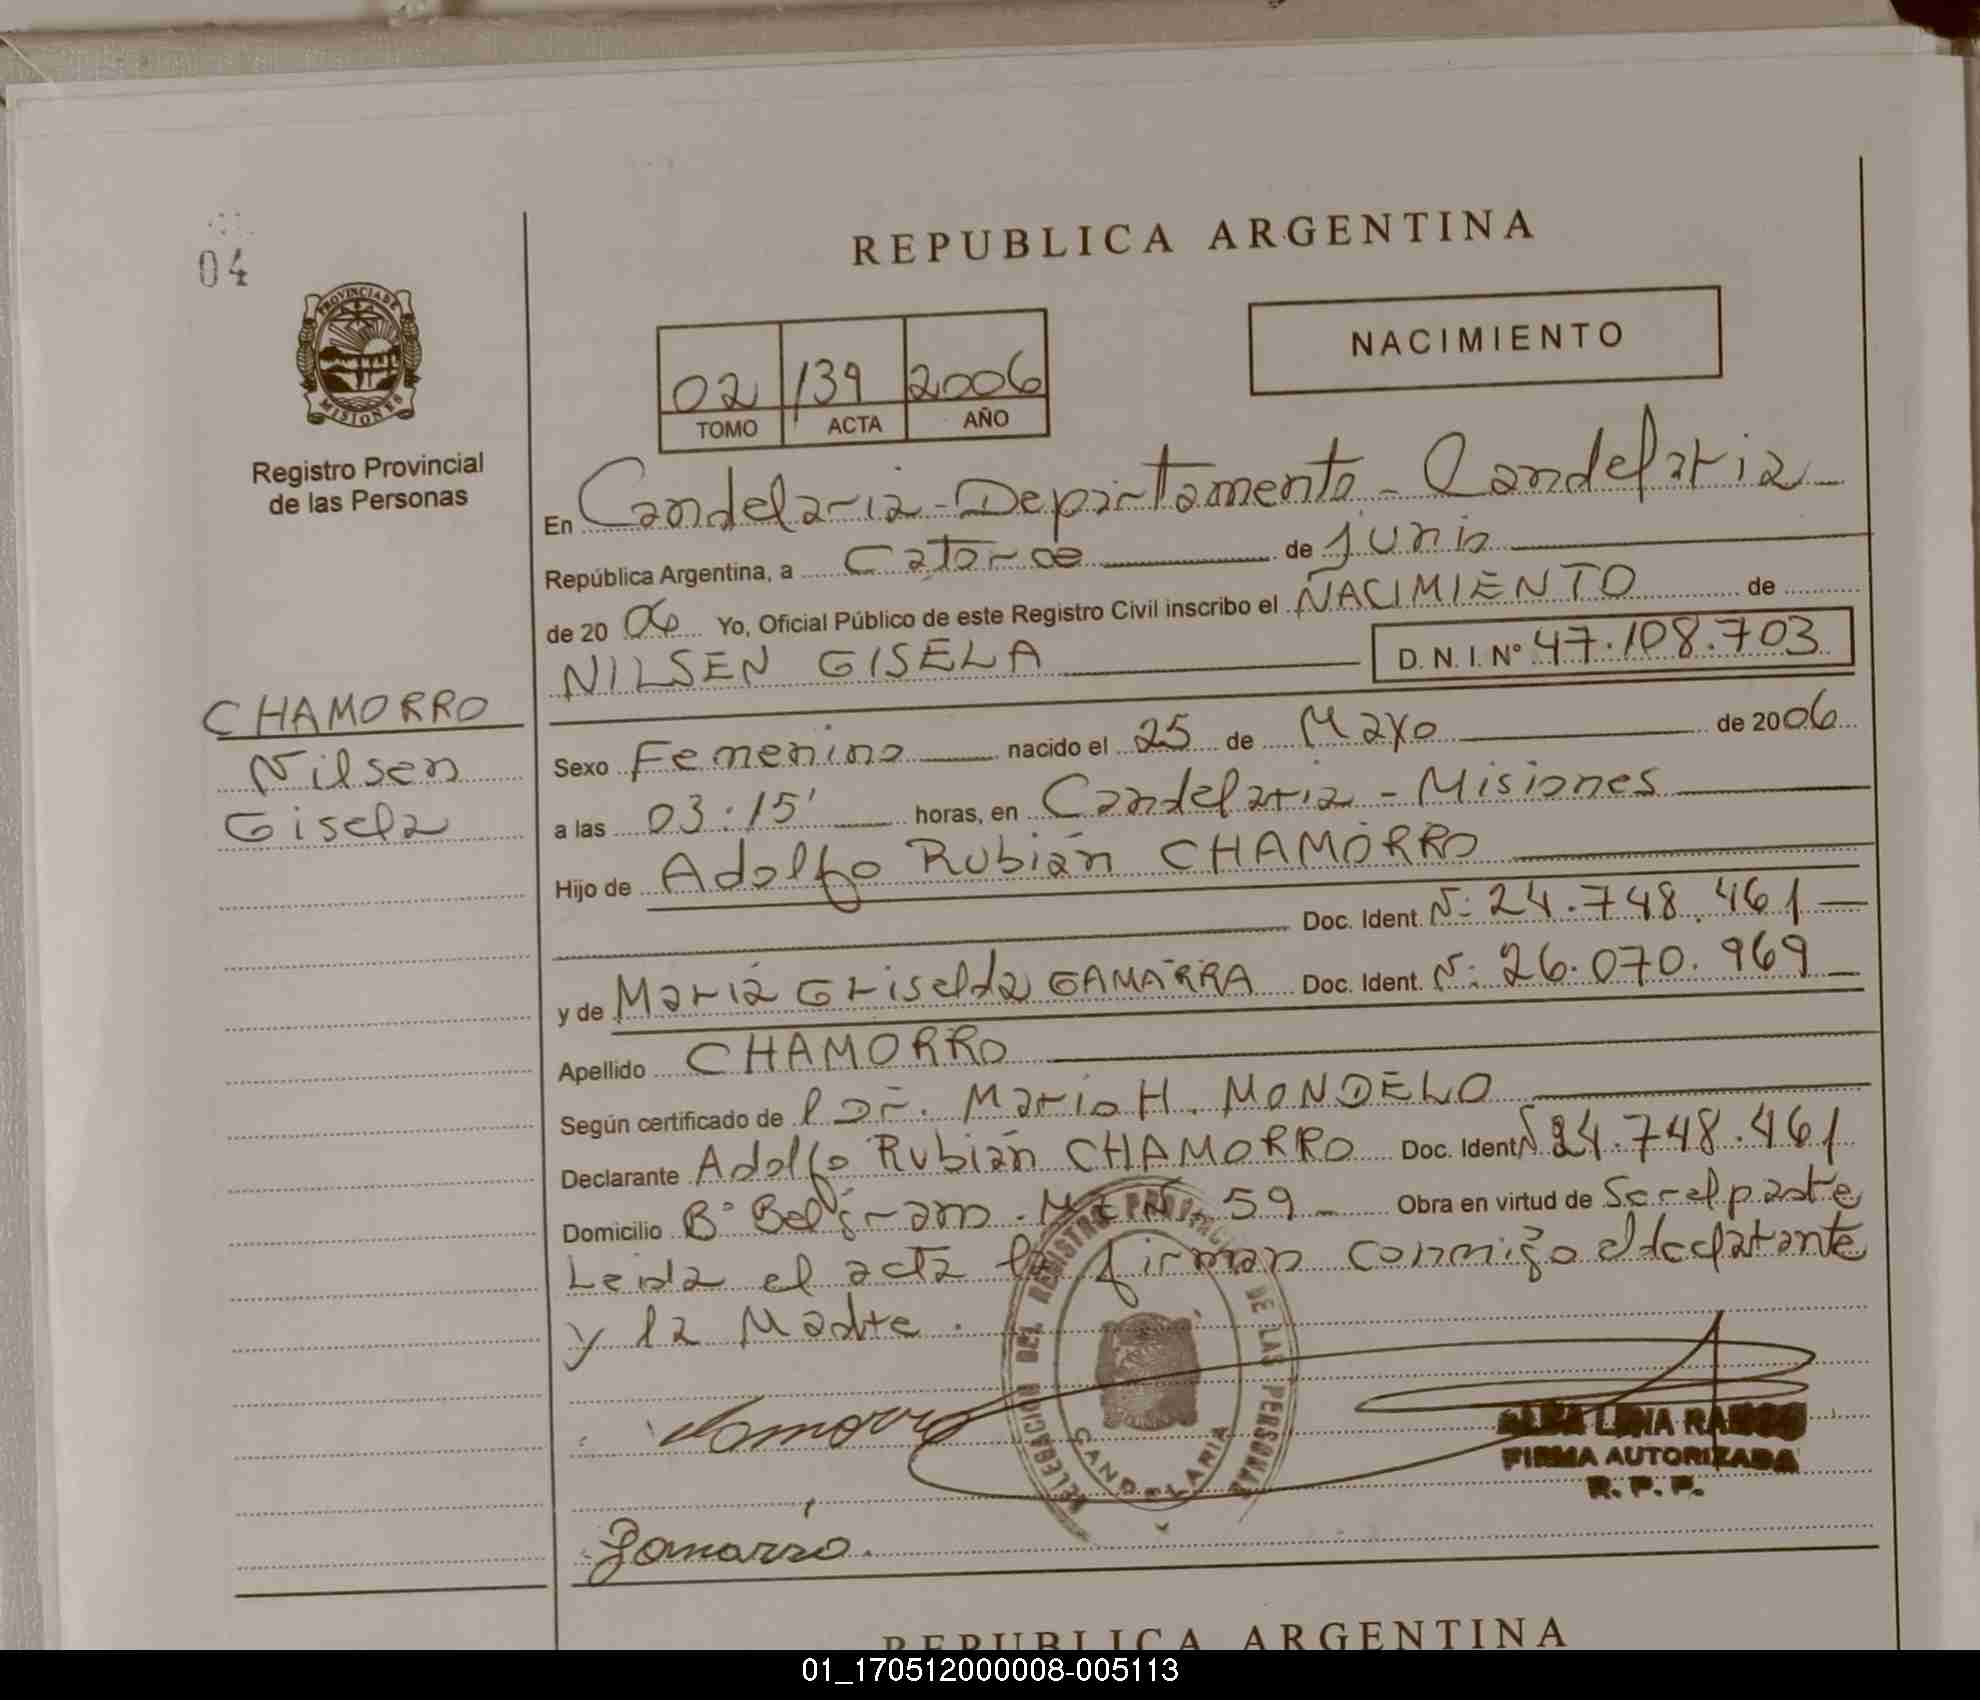 04
PROVINCIA DE
MISIONES
Registro Provincial
de las Personas
CHAMORRO
Nilsen
Gisela
REPUBLICA ARGENTINA
02 139 2006
TOMO ACTA AÑO
NACIMIENTO
En Candelaria - Departamento - Candelaria
República Argentina, a Catorce de junio
de 2006 Yo, Oficial Público de este Registro Civil inscribo el NACIMIENTO de
NILSEN GISELA D. N. I. Nº 47.108.703
Sexo Femenino nacido el 25 de Mayo de 2006
a las 03:15' horas, en Candelaria - Misiones
Hijo de Adolfo Rubián CHAMORRO
Doc. Ident. N: 24.748.461
y de María Griselda GAMARRA Doc. Ident. N: 26.070.969
Apellido CHAMORRO
Según certificado de Mario H. MONDELO
Declarante Adolfo Rubián CHAMORRO Doc. Ident N 24.748.461
Domicilio Bº Belgrano - 59 - Obra en virtud de Ser el padre
Leida el acta la firman conmigo el declarante
y la Madre.
DELEGACION DEL REGISTRO PROVINCIAL DE LAS PERSONAS
CANDELARIA
FIRMA AUTORIZADA
R. P. P.
Gamarra.
REPUBLICA ARGENTINA
01_170512000008-005113